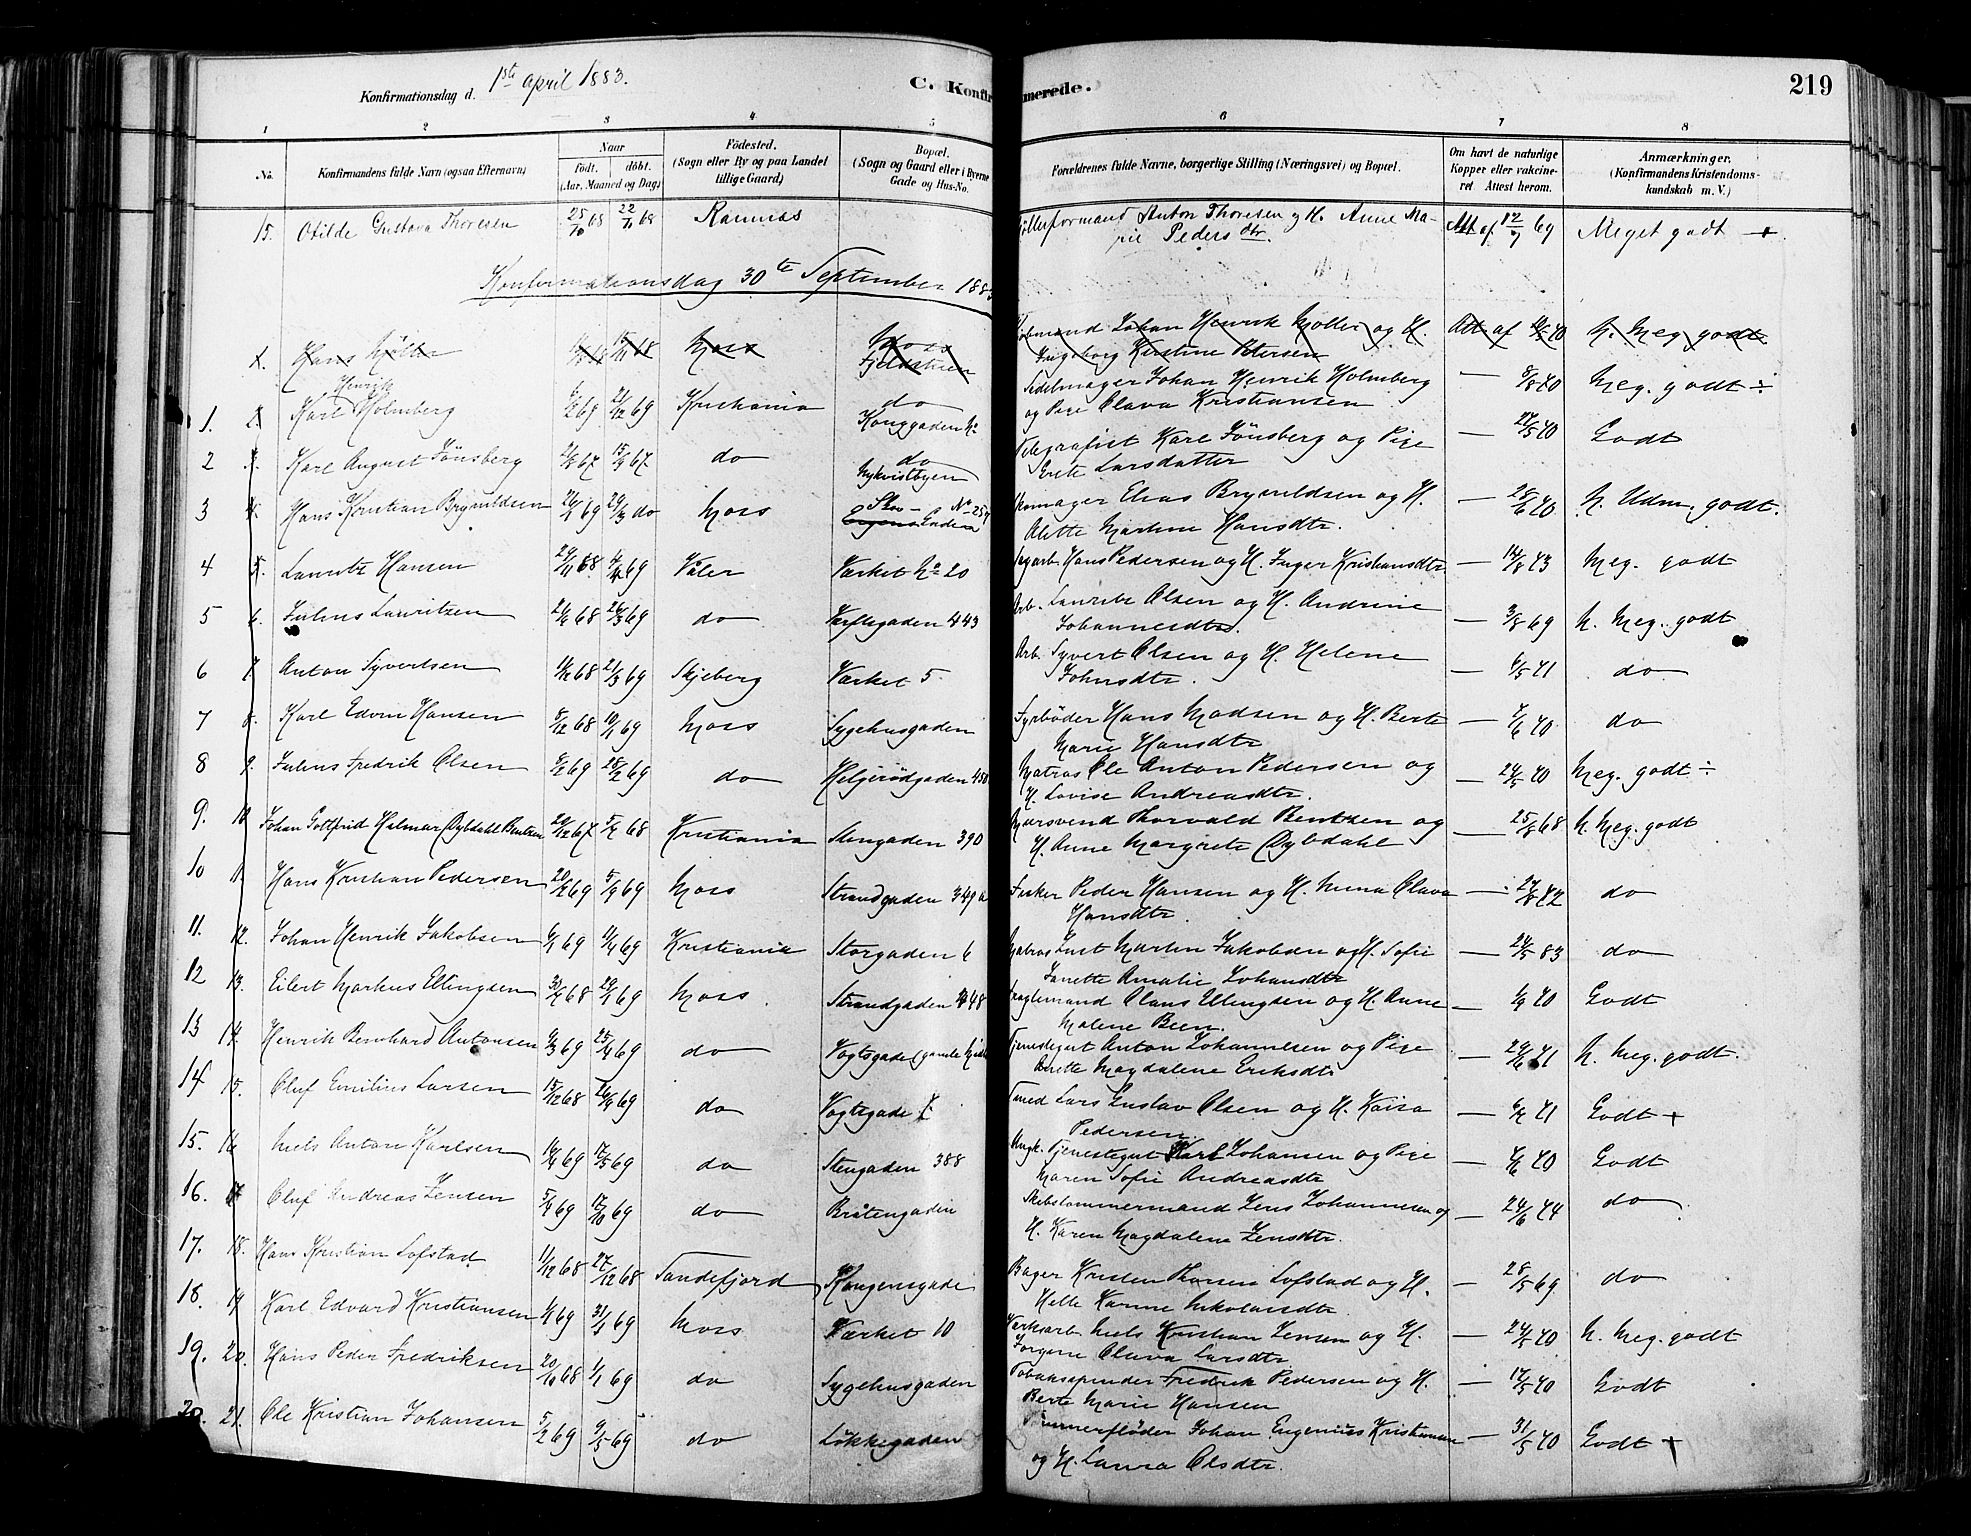 Konfirmationsdag d. 1ste April 1883.
C. Konfirmerede.
219
1 2 3 4 5 6 7 8
No.
Konfirmandens fulde Navn (ogsaa Efternavn)
Naar
født. døbt.
(Aar, Maaned og Dag)
Fødested.
(Sogn eller By og paa Landet
tillige Gaard)
Bopæl.
(Sogn og Gaard eller i Byerne
Gade og Hus-No.
Forældrenes fulde Navne, borgerlige Stilling (Næringsvei) og Bopæl.
Om havt de naturlige
Kopper eller vakcine-
ret Attest herom.
Anmærkninger.
(Konfirmandens Kristendoms-
kundskab m. V.)
15. Otilde Gustava Thoresen 25/10 68 22/11 68 Rannæs Anton Thoresen og H. Anne Ma- Att af 12/9 69 Meget godt +
rie Peders Dtr.
Konfirmationsdag 30te September 1883
Hans Møller Moss Moss Johan Henrik Møller og H. Att af N. Meg godt
Fjeldstuen Ingeborg Kirstine Petersen
1. 2. Karl Henrik Holmberg 69 69 Kristiania do Sedelmager Johan Henrik Holmberg — 8/8 70 Meg. godt ÷
Konggaden No og Pige Olava Kristiansen
2 3. Karl August Tønsberg 67 15/9 67 do do Telegrafist Karl Tønsberg og Pige — 27/5 70 Godt
Nykvistbyen Larsdatter
3 4. Hans Kristian Brynildsen 69 29/3 do Moss Skogaden No 254 Skomager Elias Brynildsen og H. — 28/6 70 N. Udm. godt.
Alette Martine Hansdtr.
4 5. Lauritz Hansen 29/11 68 69 Våler Værket No 20 Hans Pedersen og H. Inger Kristiansdtr. — 14/8 73 Meg. godt
5 6. Julius Lauritzen 68 69 do Værftsgaden 443 Arb. Lauritz Olsen og H. Andrine — 3/8 69 N. Meg. godt
Johannesdtr.
6 7. Anton Syvertsen 68 21/3 69 Skjeberg Værket 5. Arb. Syvert Olsen og H. Helene — 6/5 71 do
Johnsdtr.
7 8. Karl Edvin Hansen 8/12 68 10/1 69 Moss Sygehusgaden Fyrbøder Hans Madsen og H. Berte — 70 do
Marie Hansdtr
8 9. Julius Fredrik Olsen 69 28/2 69 do Helgerødgaden 450 Matros Ole Anton Pedersen og — 24/5 70 Meg. godt ÷
H. Lovise Andreasdtr.
9. 10 Johan Gottfrid Halmar Dybdahl Bentzen 29/12 67 68 Kristiania Stengaden 390 Thorvald Bentzen og — 25/8 68 N. Meg. godt
H. Anne Margrete Dybdahl
10 11. Hans Kristian Pedersen 69 69 Moss Strandgaden 349 a Fisker Peder Hansen og H. Mina Olava — 72 do
Hansdtr.
11. 12. Johan Henrik Jakobsen 69 11/4 69 Kristiania Storgaden 6 Matros Just Martin Jakobsen og H. Sofie — 24/5 83 do
Janette Amalie Johansdtr
12 13. Eilert Markus Ellingsen 68 69 Moss. Strandgaden 448 Claus Ellingsen og H. Anne — 70 Godt
Malene Been.
13 14. Henrik Bernhard Antonsen 69 25/4 69 do Vogtsgade Tjenestegut Anton Johannesen og Pige — 29/6 71 N. Meg. godt.
Magdalene Eriksdtr
14 15. Oluf Emilius Larsen 15/12 68 69 do Vogtsgade Lars Gustav Olsen og H. Kaisa — 71 Godt +
Pedersen
15. 16 Niels Anton Karlsen 69 17/5 69 do Stengaden 388 Tjenestegut Karl Johansen og Pige — 70 Godt
Maren Sofie Andreasdtr
16. 17 Oluf Andreas Jensen 69 17/10 69 do Bråtengaden Skibstømmermand Jens Johannesen og — 24/6 74 do
H. Karen Magdalene Jensdtr.
17. 18. Hans Kristian Lofstad 11/12 68 27/12 68 Sandefjord Kongensgade Bager Kristen Thorsen Lofstad og H. — 28/5 69 do
Helle Karine Nikolaisdtr
18. 19 Karl Edvard Kristiansen 69 69 Moss Værket 10 Verksarb. Niels Kristian Jensen og H. — 24/5 70 N. Meg. godt
Jørgine Olava Larsdtr
19. 20. Hans Peder Fredriksen 20/10 68 1/1 69 do Sygehusgaden Tobaksspinder Fredrik Pedersen og H. — 17/5 70 Godt
Berte Marie Hansen
20. 21. Ole Kristian Johansen 5/2 69 9/5 69 do Løkkegaden Tømmerfløder Johan Eugenius Kristiansen — 31/5 70 Godt +
og H. Laura Olsdtr.